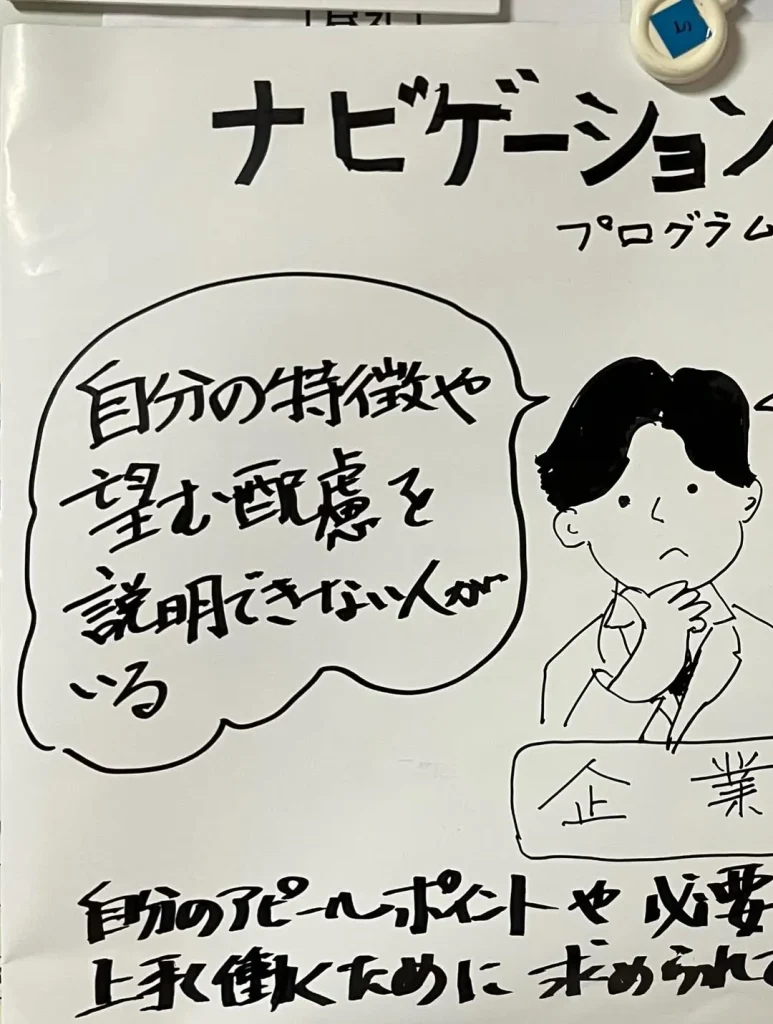 ナビゲーション
プログラム
自分の特徴や
望む配慮を
説明できない人が
いる
企業
自分のアピールポイントや必要
上手く働くために求められて